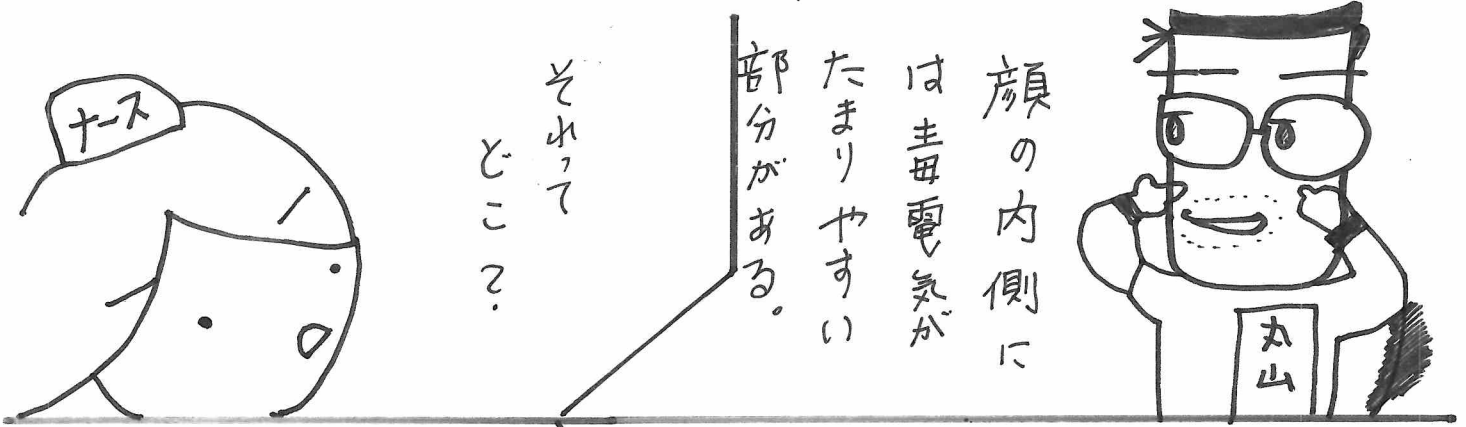 丸山
顔の内側に
は毒電気が
たまりやすい
部分がある。
それって
どこ?
ナース